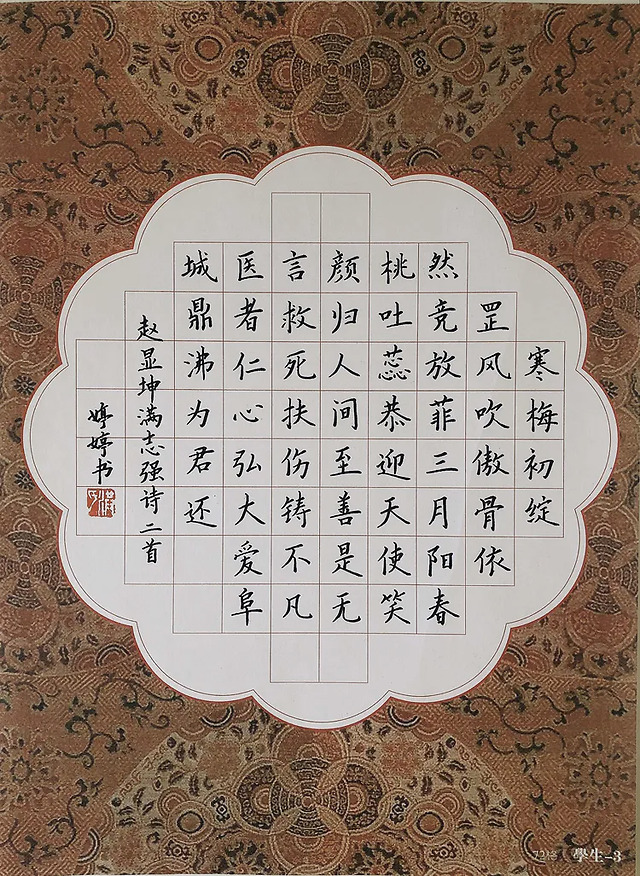 寒梅初绽
罡风吹傲骨依
然竞放菲三月阳春
桃吐蕊恭迎天使笑
颜归人间至善是无
言救死扶伤铸不凡
医者仁心弘大爱阜
城鼎沸为君还
赵显坤满志强诗二首
婷婷书
學生-3